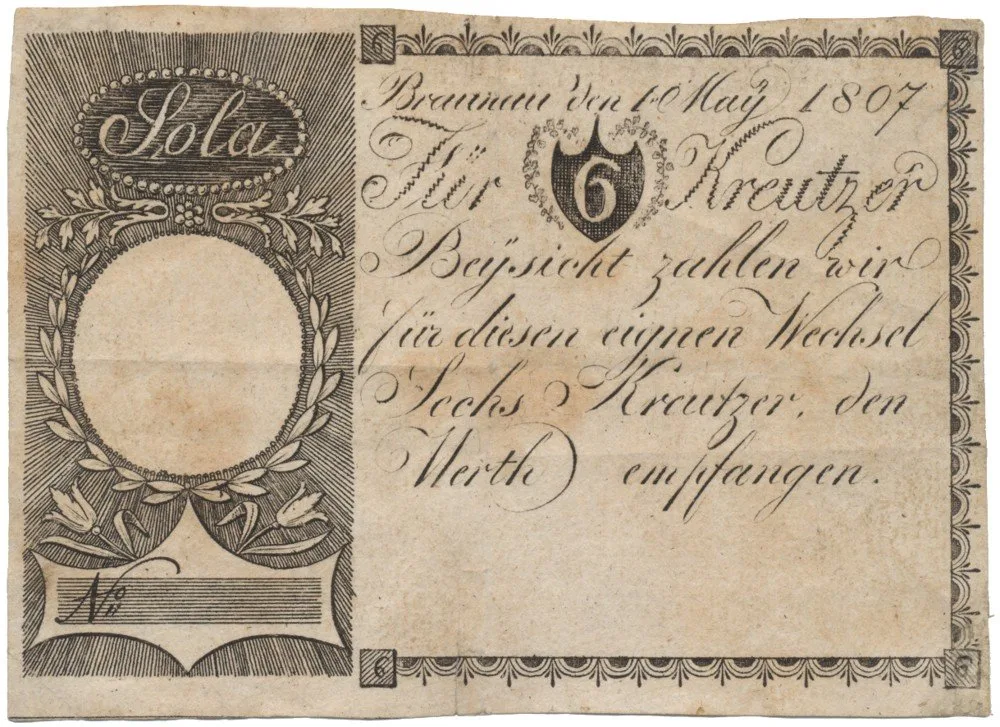 Sola
No
6
6
Braunau den 10 Maÿ 1807
Für 6 Kreutzer
Beÿsicht zahlen wir
für diesen eignen Wechsel
Sechs Kreutzer, den
Werth empfangen.
6
6